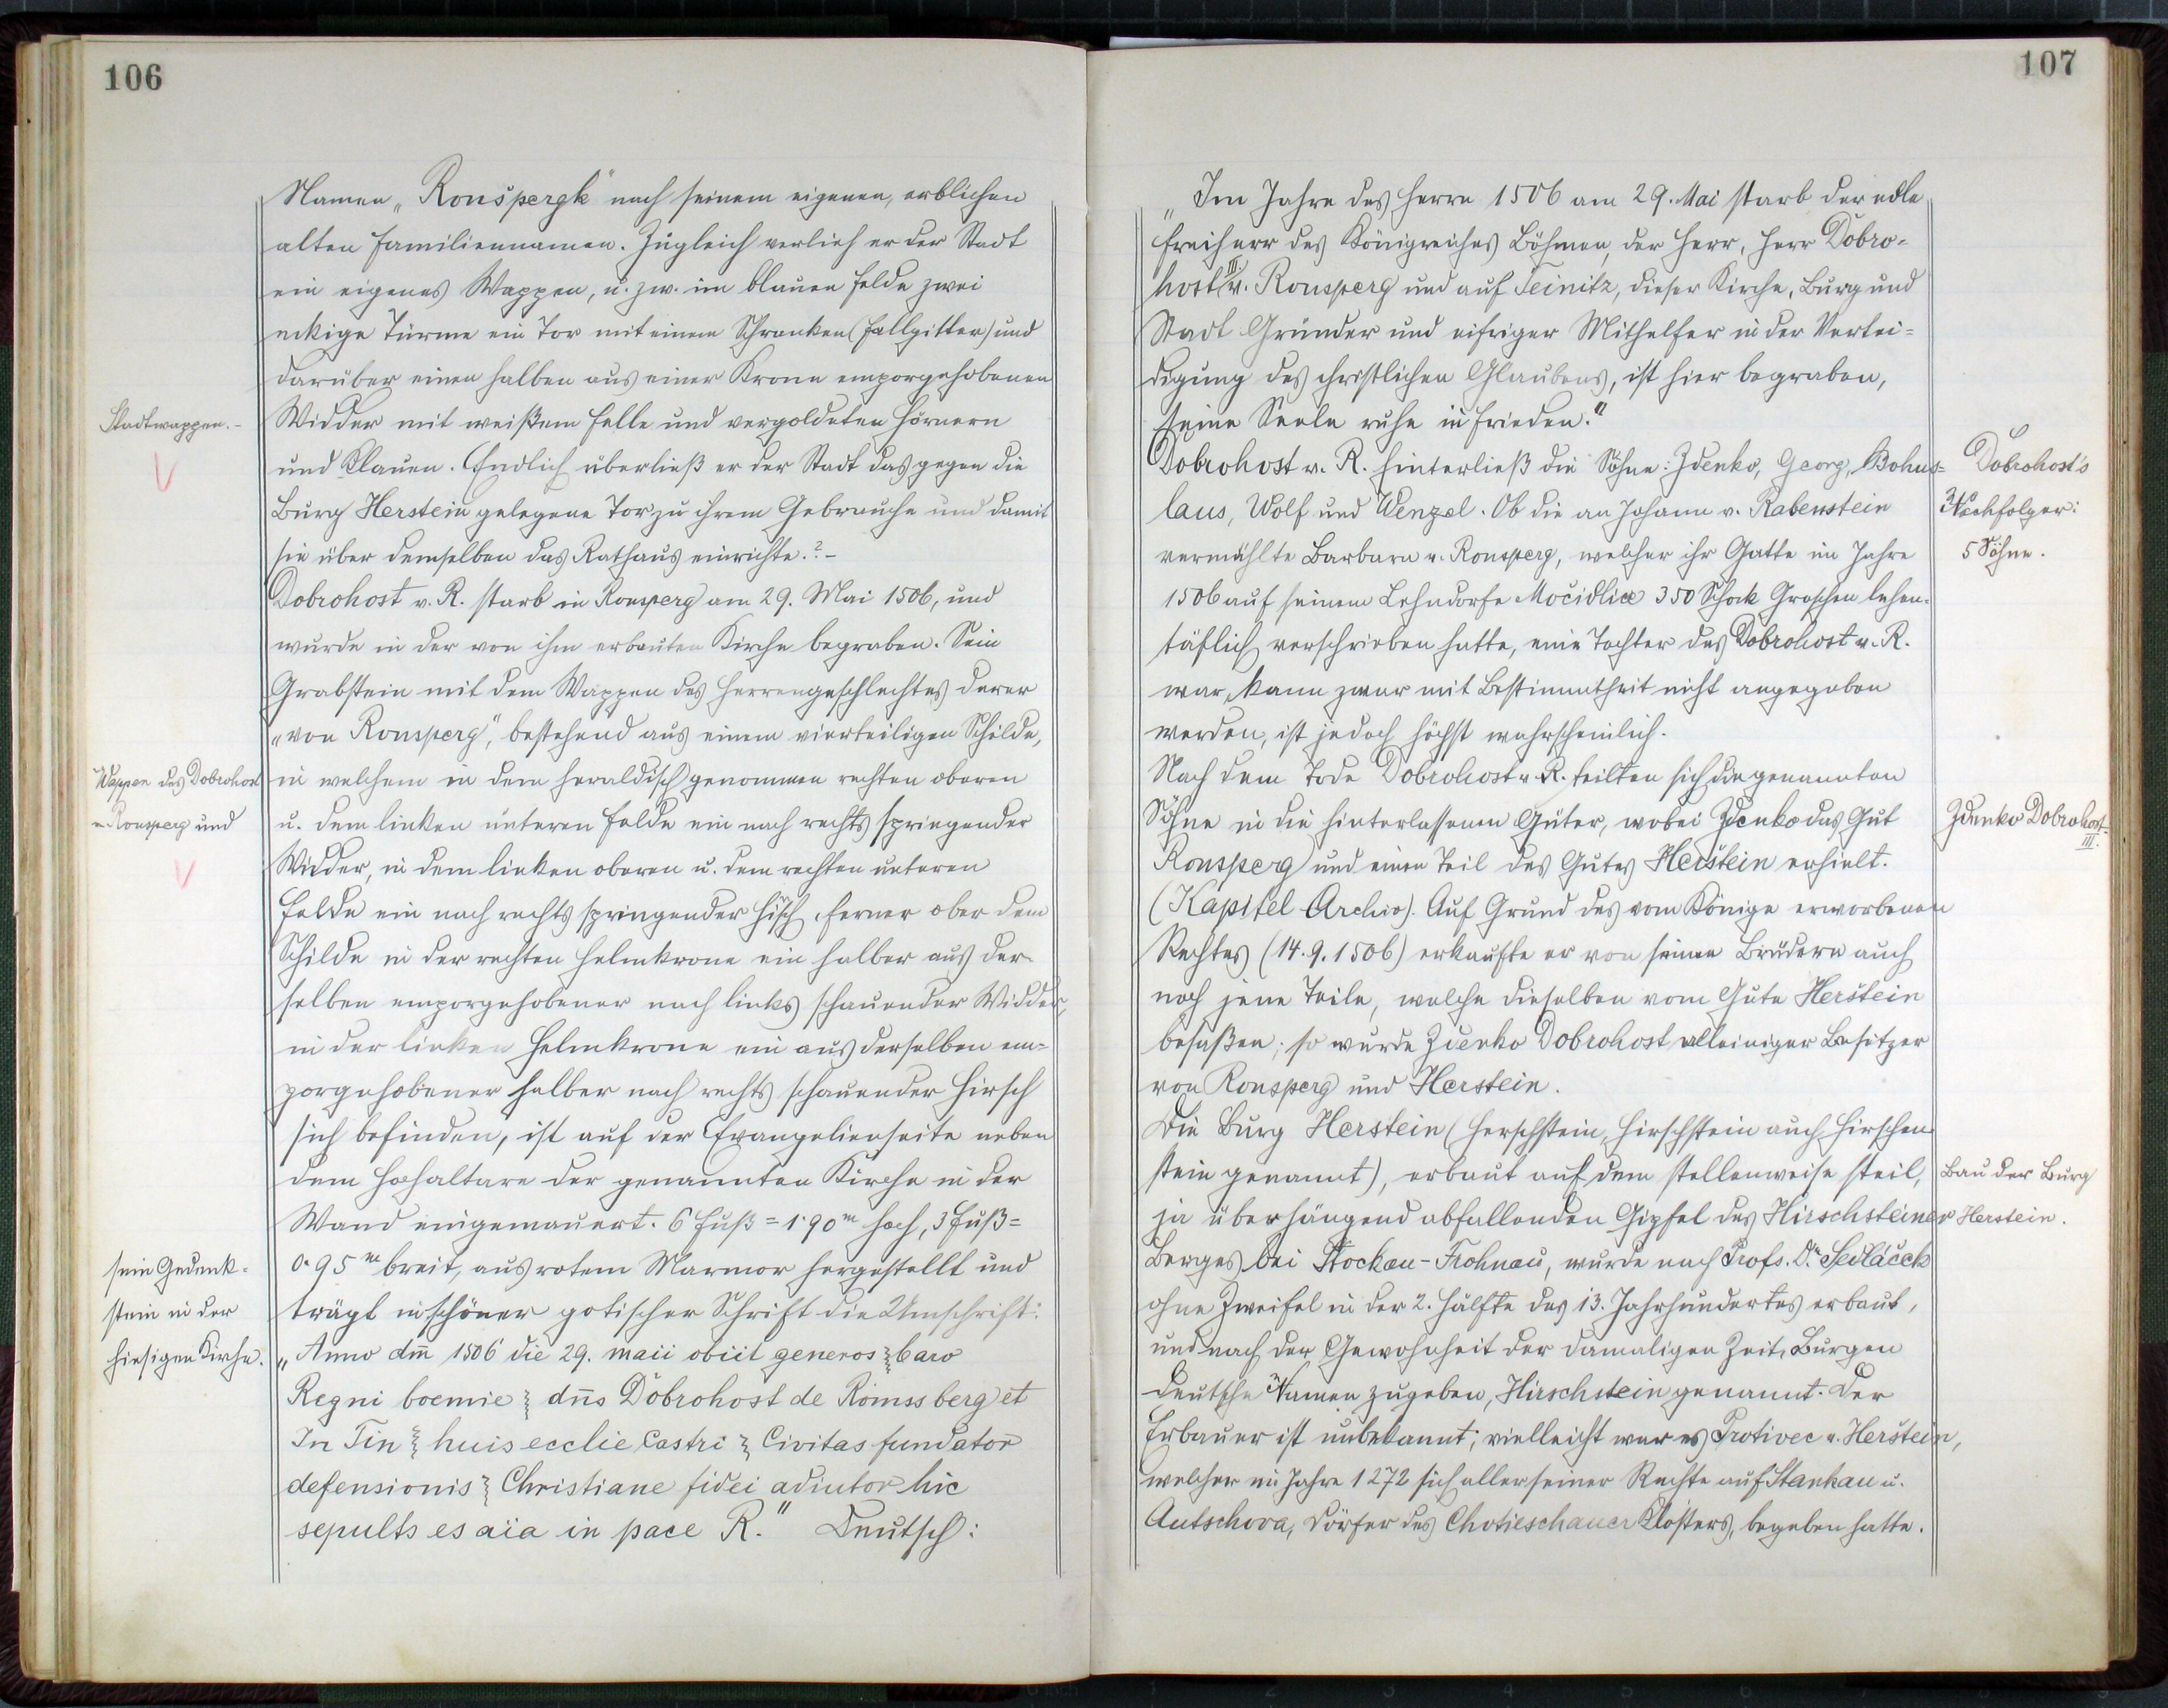 106
Namen „Ronšpergk" nach seinem eigenen, erblichen
alten Familiennamen. Zugleich verlieh er der Stadt
ein eigenes Wappen, u. zw. im blauen Felde zwei
eckige Türme ein Tor mit einem Schranken (Fallgitter) und
darüber einen halben aus einer Krone emporgehobenen
Stadtwappen.-
Widder mit weißem Felle und vergoldeten Hörnern
und Klauen. Endlich überließ er der Stadt das gegen die
Burg Herstein gelegene Tor zu ihrem Gebrauche und damit
sie über demselben das Rathaus einrichte.?-
Dobrohost v. R. starb in Ronsperg am 29. Mai 1506, und
wurde in der von ihm erbauten Kirche begraben. Sein
Grabstein mit dem Wappen des Herrengeschlechtes derer
„von Ronsperg", bestehend aus einem vierteiligen Schilde,
Wappen des Dobrohost
in welchem in dem heraldisch genommen rechten oberen
v. Ronsperg und
u. dem linken unteren Felde ein nach rechts springender
Widder, in dem linken oberen u. dem rechten unteren
Felde ein nach rechts springender Hirsch, ferner ober dem
Schilde in der rechten Helmkrone ein halber aus der-
selben emporgehobener nach links schauender Widder,
in der linken Helmkrone ein aus derselben em-
porgehobener halber nach rechts schauender Hirsch
sich befinden, ist auf der Evangelienseite neben
dem Hochaltare der genannten Kirche in der
Wand eingemauert. 6 Fuß = 1·90 m hoch, 3 Fuß =
sein Gedenk-
0·95 m breit, aus rotem Marmor hergestellt und
stein in der
trägt in schöner gotischer Schrift die Umschrift:
hiesigen Kirche.
„Anno dm̄ 1506 die 29. maii obiit generos baro
Regni boemie dn̄s Dobrohost de Römss berg et
In Tin huis ecclie Castri Civitas fundator
defensionis Christiane fidei adiutor hic
sepults es aïa in pace R." Deutsch:
107
„Im Jahre des Herrn 1506 am 29. Mai starb der edle
Freiherr des Königreiches Böhmen, der Herr, Herr Dobro-
host III v. Ronsperg und auf Teinitz, dieser Kirche, Burg und
Stadt Gründer und eifriger Mithelfer in der Vertei-
digung des christlichen Glaubens, ist hier begraben,
seine Seele ruhe in Frieden."
Dobrohost v. R. hinterließ die Söhne: Zdenko, Georg, Bohus-
Dobrohost's
laus, Wolf und Wenzel. Ob die an Johann v. Rabenstein
Nachfolger:
vermählte Barbara v. Ronsperg, welcher ihr Gatte im Jahre
5 Söhne.
1506 auf seinem Lehndorfe Močidlice 350 Schock Groschen lehen-
täflich verschrieben hatte, eine Tochter des Dobrohost v. R.
war, kann zwar mit Bestimmtheit nicht angegeben
werden, ist jedoch höchst wahrscheinlich.
Nach dem Tode Dobrohost v. R. teilten sich die genannten
Söhne in die hinterlassenen Güter, wobei Zdenko das Gut
Zdenko Dobrohost
III.
Ronsperg und einen Teil des Gutes Herštein erhielt.
(Kapitel-Archiv). Auf Grund des vom Könige erworbenen
Rechtes (14.9.1506) erkaufte er von seinen Brüdern auch
noch jene Teile, welche dieselben vom Gute Herštein
besaßen; so wurde Zdenko Dobrohost alleiniger Besitzer
von Ronsperg und Herstein.
Die Burg Herstein (Herschstein, Hirschstein auch Hirschen-
stein genannt), erbaut auf dem stellenweise steil,
Bau der Burg
ja überhängend abfallenden Gipfel des Hirschsteiner
Herstein.
Berges bei Stockau-Frohnau, wurde nach Profs. Dr. Sedláček
ohne Zweifel in der 2. Hälfte des 13. Jahrhundertes erbaut,
und nach der Gewohnheit der damaligen Zeit, Burgen
deutsche Namen zugeben, Hirschstein genannt. Der
Erbauer ist unbekannt; vielleicht war es Protivec v. Herštein,
welcher im Jahre 1272 sich aller seiner Rechte auf Stankau u.
Autschova, Dörfer des Chotieschauer Klosters, begeben hatte.